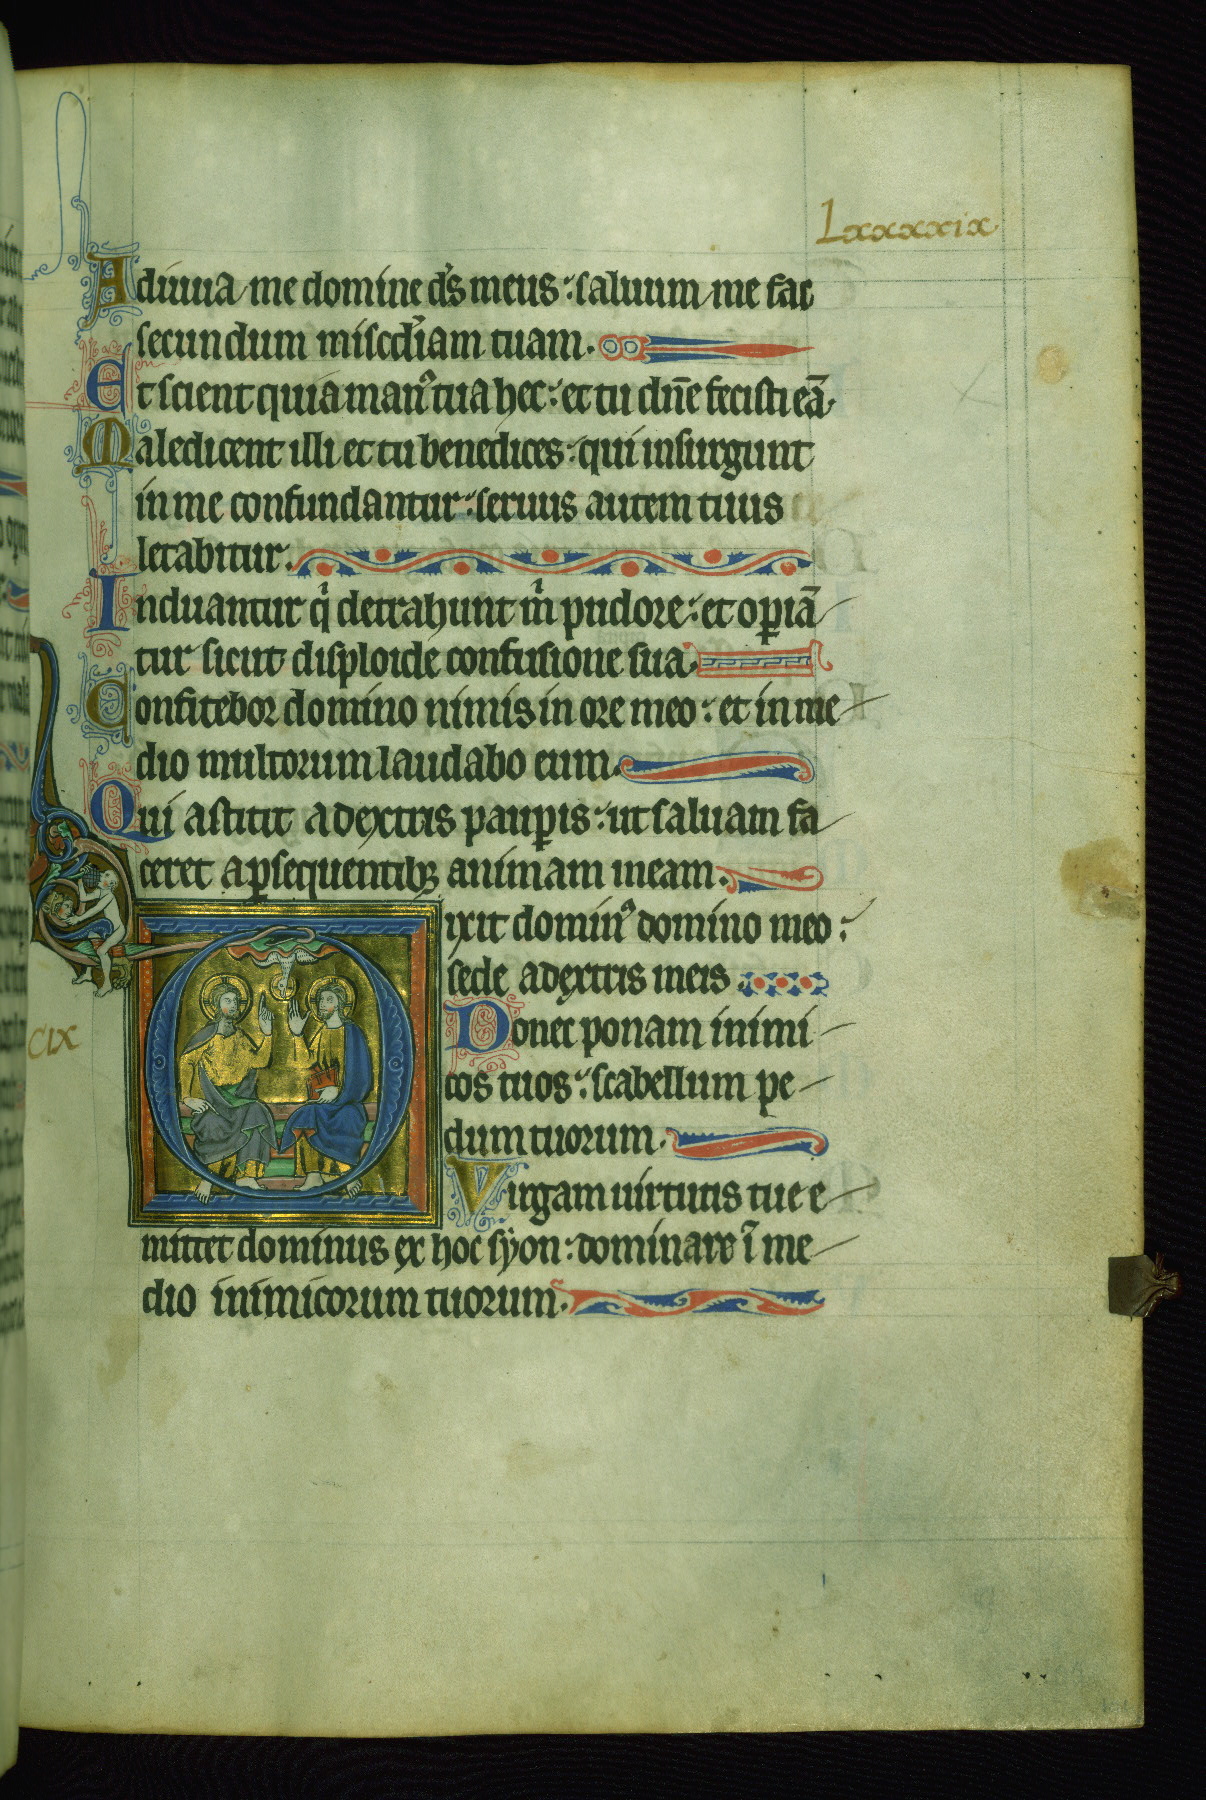 Lxxxxix
Adiuua me domine d̃s meus : saluum me fac
secundum misc̃diam tuam.
Et scient quia manꝰ tua hec : et tu dñe fecisti eã.
Maledicent illi et tu benedices : qui insurgunt
in me confundantur : seruus autem tuus
letabitur.
Induantur q̇ detrahunt m̃ pudore : et oꝑiã
tur sicut diploide confusione sua.
Confitebor domino nimis in ore meo : et in me
dio multorum laudabo eum.
Qui astitit a dextris pauꝑis : ut saluam fa
ceret a ꝑsequentibꝫ animam meam.
Dixit dominꝰ domino meo :
sede a dextris meis.
Donec ponam inimi
cos tuos : scabellum pe
dum tuorum.
CIX
Virgam uirtutis tue e
mittet dominus ex hoc syon : dominare ĩ me
dio inimicorum tuorum.